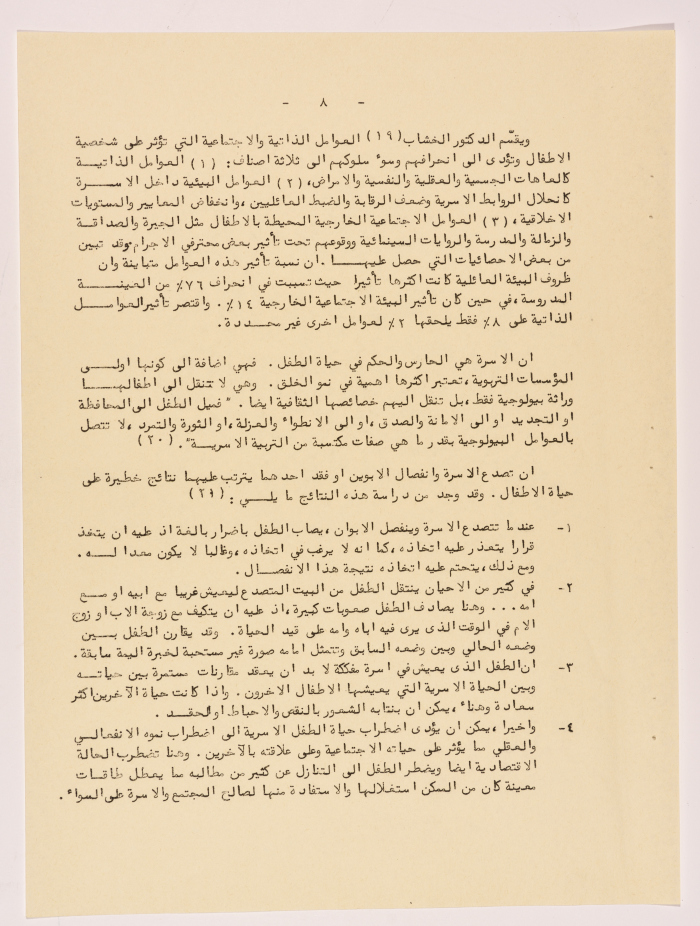 - ٨ -
ويقسّم الدكتور الخشاب (١٩) العوامل الذاتية والاجتماعية التي تؤثر على شخصية
الاطفال وتؤدى الى انحرافهم وسوء سلوكهم الى ثلاثة اصناف: (١) العوامل الذاتيــة
كالعاهات الجسمية والعقلية والنفسية والامراض، (٢) العوامل البيئية داخل الاســـرة
كانحلال الروابط الاسرية وضعف الرقابة والضبط العائليين، وانخفاض المعايير والمستويات
الاخلاقية، (٣) العوامل الاجتماعية الخارجية المحيطة بالاطفال مثل الجيرة والصداقــة
والزمالة والمدرسة والروايات السينمائية ووقوعهم تحت تأثير بعض محترفي الاجرام. وقد تبين
من بعض الاحصائيات التي حصل عليهـــا. ان نسبة تأثير هذه العوامل متباينة وان
ظروف البيئة العائلية كانت اكثرها تأثيرا حيث تسببت في انحراف ٧٦٪ من العينـــة
المدروسة، في حين كان تأثير البيئة الاجتماعية الخارجية ١٤٪. واقتصر تأثير العوامـــل
الذاتية على ٨٪ فقط يلحقها ٢٪ لعوامل اخرى غير محــددة.
ان الاسرة هي الحارس والحكم في حياة الطفل. فهي اضافة الى كونها اولـــى
المؤسسات التربوية، تعتبر اكثرها اهمية في نمو الخلق. وهي لا تنقل الى اطفالهـــا
وراثة بيولوجية فقط، بل تنقل اليهم خصائصها الثقافية ايضا. "فميل الطفل الى المحافظة
او التجديد او الى الامانة والصدق، او الى الانطواء والعزلة، او الثورة والتمرد، لا تتصل
بالعوامل البيولوجية بقدر ما هي صفات مكتسبة من التربية الاسريــة". (٢٠)
ان تصدع الاسرة وانفصال الابوين او فقد احدهما يترتب عليهما نتائج خطيرة على
حياة الاطفال. وقد وجد من دراسة هذه النتائج ما يلــي: (٢١)
١- عندما تتصدع الاسرة وينفصل الابوان، يصاب الطفل باضرار بالغة اذ عليه ان يتخذ
قرارا يتعذر عليه اتخاذه، كما انه لا يرغب في اتخاذه، وغالبا لا يكون معدا لــه.
ومع ذلك، يتحتم عليه اتخاذه نتيجة هذا الانفصــال.
٢- في كثير من الاحيان ينتقل الطفل من البيت المتصدع ليعيش غريبا مع ابيه او مــع
امه... وهنا يصادف الطفل صعوبات كبيرة، اذ عليه ان يتكيف مع زوجة الاب او زوج
الام في الوقت الذى يرى فيه اباه وامه على قيد الحياة. وقد يقارن الطفل بـــين
وضعه الحالي وبين وضعه السابق وتتمثل امامه صورة غير مستحبة لخبرة اليمة سابقة.
٣- ان الطفل الذى يعيش في اسرة مفككة لا بد ان يعقد مقارنات مستمرة بين حياتــه
وبين الحياة الاسرية التي يعيشها الاطفال الاخرون. واذا كانت حياة الآخرين اكثر
سعادة وهناء، يمكن ان ينتابه الشعور بالنقص والاحباط او الحقــد.
٤- واخيرا، يمكن ان يؤدى اضطراب حياة الطفل الاسرية الى اضطراب نموه الانفعالــي
والعقلي مما يؤثر على حياته الاجتماعية وعلى علاقته بالآخرين. وهنا تضطرب الحالة
الاقتصادية ايضا ويضطر الطفل الى التنازل عن كثير من مطالبه مما يعطل طاقــات
معينة كان من السكن استغلالها والاستفادة منها لصالح المجتمع والاسرة على السواء.